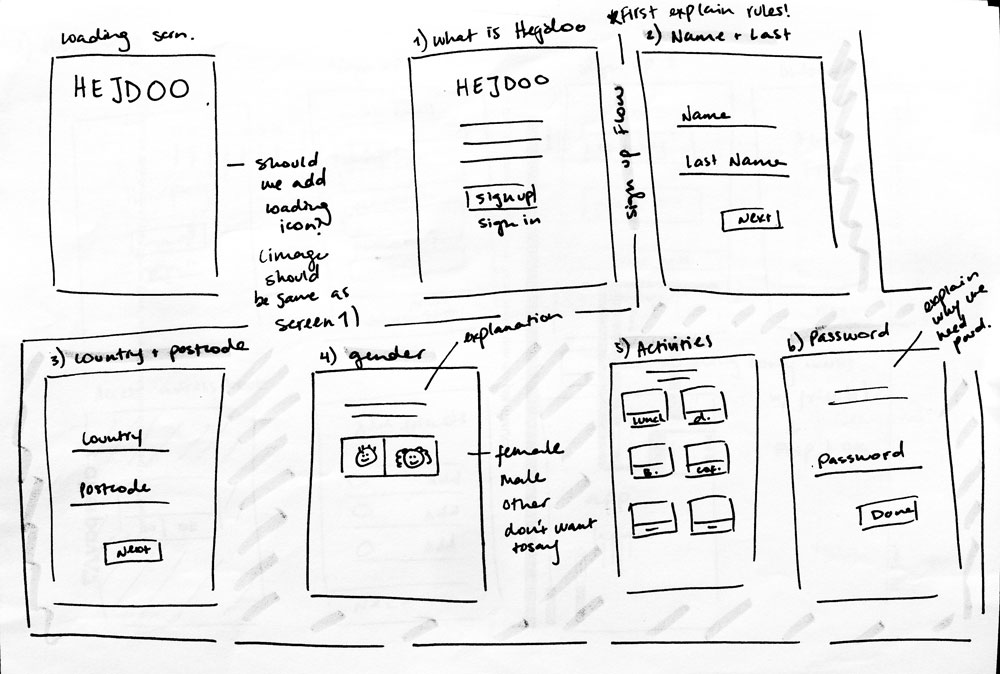 loading scrn.
HEJDOO
should
we add
loading
icon?
(image
should
be same as
screen 1)
1) What is Hejdoo
HEJDOO
sign up
sign in
*First explain rules!
sign up flow
2) Name + Last
Name
Last Name
Next
3) Country + postcode
Country
Postcode
Next
4) gender
explanation
female
male
other
don't want
to say
5) Activities
lunch
d.
B.
cof.
6) Password
explain
why we
need
Password
Done